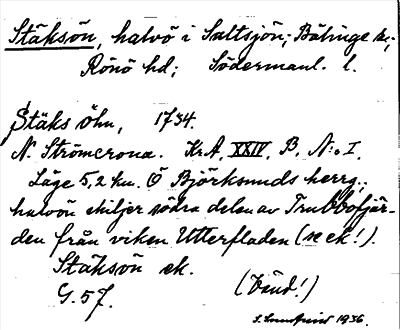 Stäksön, halvö i Saltsjön; Bälinge sn;
Rönö hd; Södermanl. l.
Stäks öhn, 1734.
N. Strömcrona. KrA, XXIV, B, N:o I.
Läge 5,2 km. Ö Björksunds herrg.;
halvön skiljer södra delen av Trubbofjär-
den från viken Utterfladen (se ek!).
Stäksön ek.
G. 57. (Vänd!)
1936.